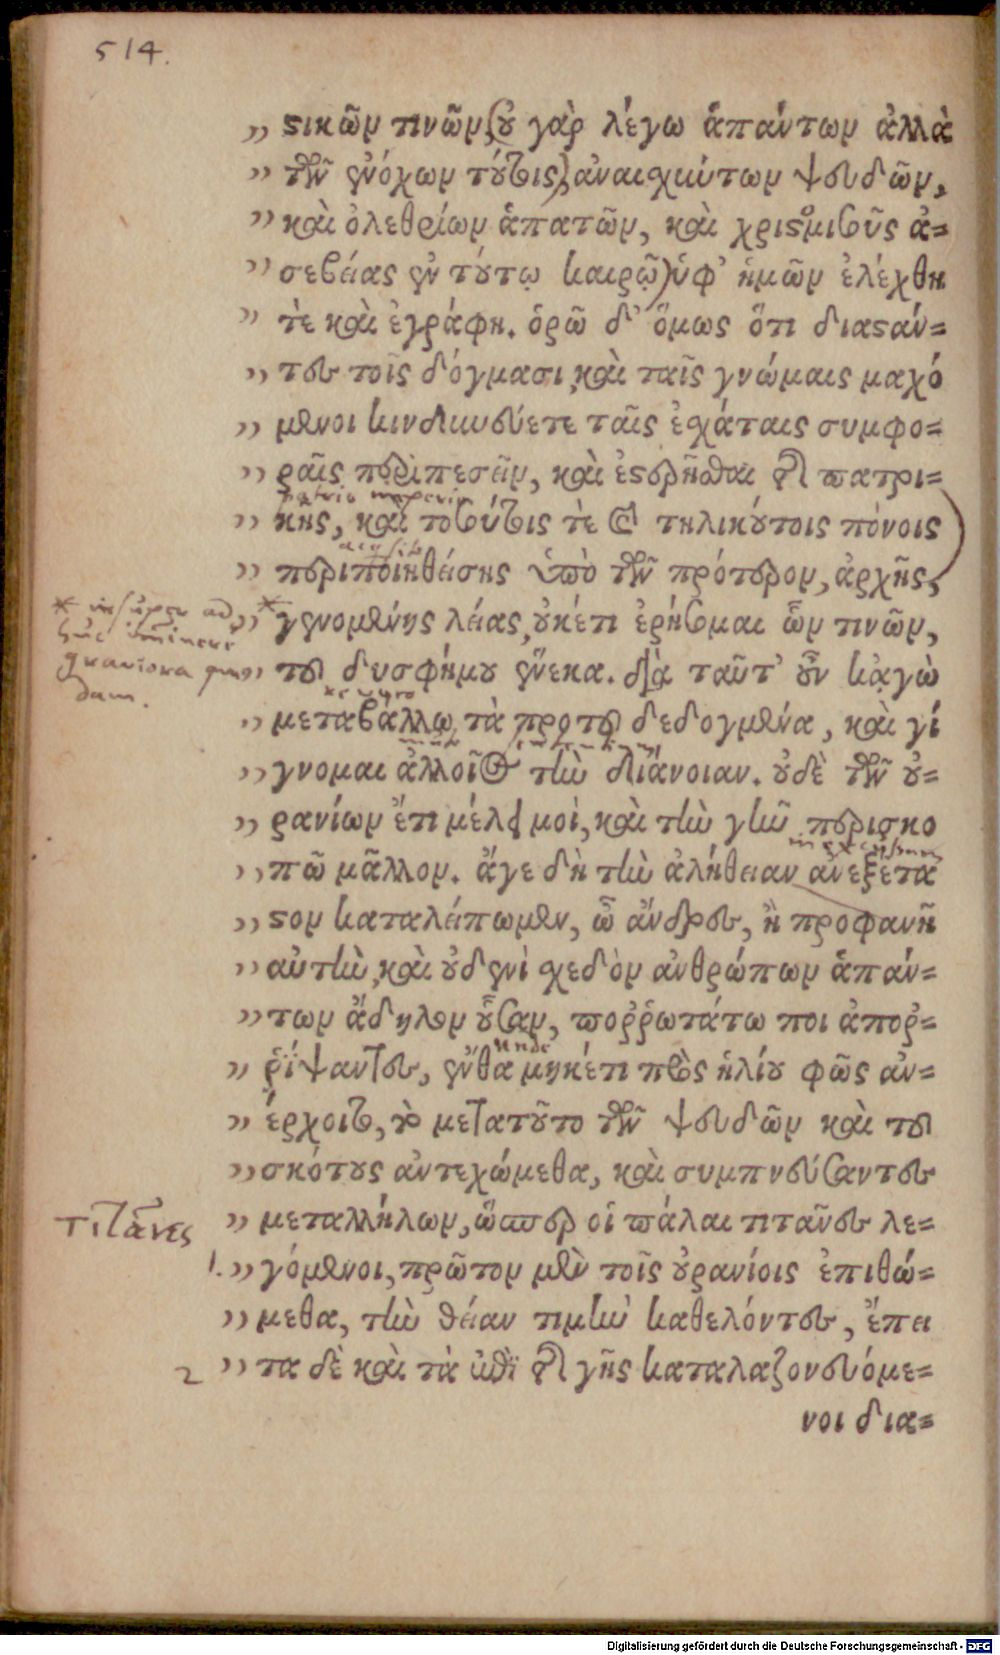 514.
„ στικῶν τινῶν (οὐ γὰρ λέγω ἁπάντων ἀλλὰ
„ τῶν ἐνόχων τούτοις) ἀναισχύντων ψευδῶν,
„ καὶ ὀλεθρίων ἀπατῶν, καὶ
„ σεβείας ἐν τούτῳ καιρῷ) ὑφ' ἡμῶν ἐλέχθη
„ τὲ καὶ ἐγράφη. ὁρῶ δ' ὅμως ὅτι διαστάν-
„ τες τοῖς δόγμασι, καὶ ταῖς γνώμαις μαχό
„ μενοι κινδυνεύετε ταῖς ἐσχάταις συμφο-
„ ραῖς περιπεσεῖν, καὶ ἐστερῆσθαι τῆς πατρι-
patrio imperio
„ κῆς, καὶ τοσούτοις τὲ καὶ τηλικούτοις πόνοις
acqsito
„ περιποιηθείσης ὑπὸ τῶν πρότερον, ἀρχῆς,
* insuper ad
„ * γενομένης λείας, οὐκέτι ἐρήσομαι ὧν τινῶν,
huc imminere
graviora quae
„ του δυσφήμου ἕνεκα. διὰ ταῦτ' οὖν κἀγὼ
dam.
„ μεταβάλλω τὰ προτοῦ δεδογμένα, καὶ γί
„ γνομαι ἀλλοῖος τὴν διάνοιαν. οὐδὲ τῶν οὐ-
„ ρανίων ἔτι μέλει μοὶ, καὶ τὴν γῆν περισκο
„ πῶ μᾶλλον. ἄγε δὴ τὴν ἀλήθειαν ἀνεξετα
„ στον καταλείπωμεν, ὦ ἄνδρες, ἢ προφανῆ
„ αὐτὴν, καὶ οὐδενὶ σχεδὸν ἀνθρώπων ἁπάν-
„ των ἄδηλον οὖσαν, πορῤῥωτάτω ποι ἀποῤ-
„ ῥίψαντες, ἔνθα μηκέτι πρὸς ἡλίου φῶς ἀν-
„ έρχοιτο, τὸ μετὰ τοῦτο τῶν ψευδῶν καὶ του
„ σκότους ἀντεχώμεθα, καὶ συμπνεύσαντες
Τιτᾶνες
„ μεταλλήλων, ὥσπερ οἱ πάλαι τιτᾶνες λε-
1. „ γόμενοι, πρῶτον μὲν τοῖς οὐρανίοις ἐπιθώ-
„ μεθα, τὴν θείαν τιμὴν καθελόντες, ἔπει
2 „ τα δὲ καὶ τὰ ἐπὶ τῆς γῆς καταλαζονευόμε-
νοι δια-
Digitalisierung gefördert durch die Deutsche Forschungsgemeinschaft - DFG